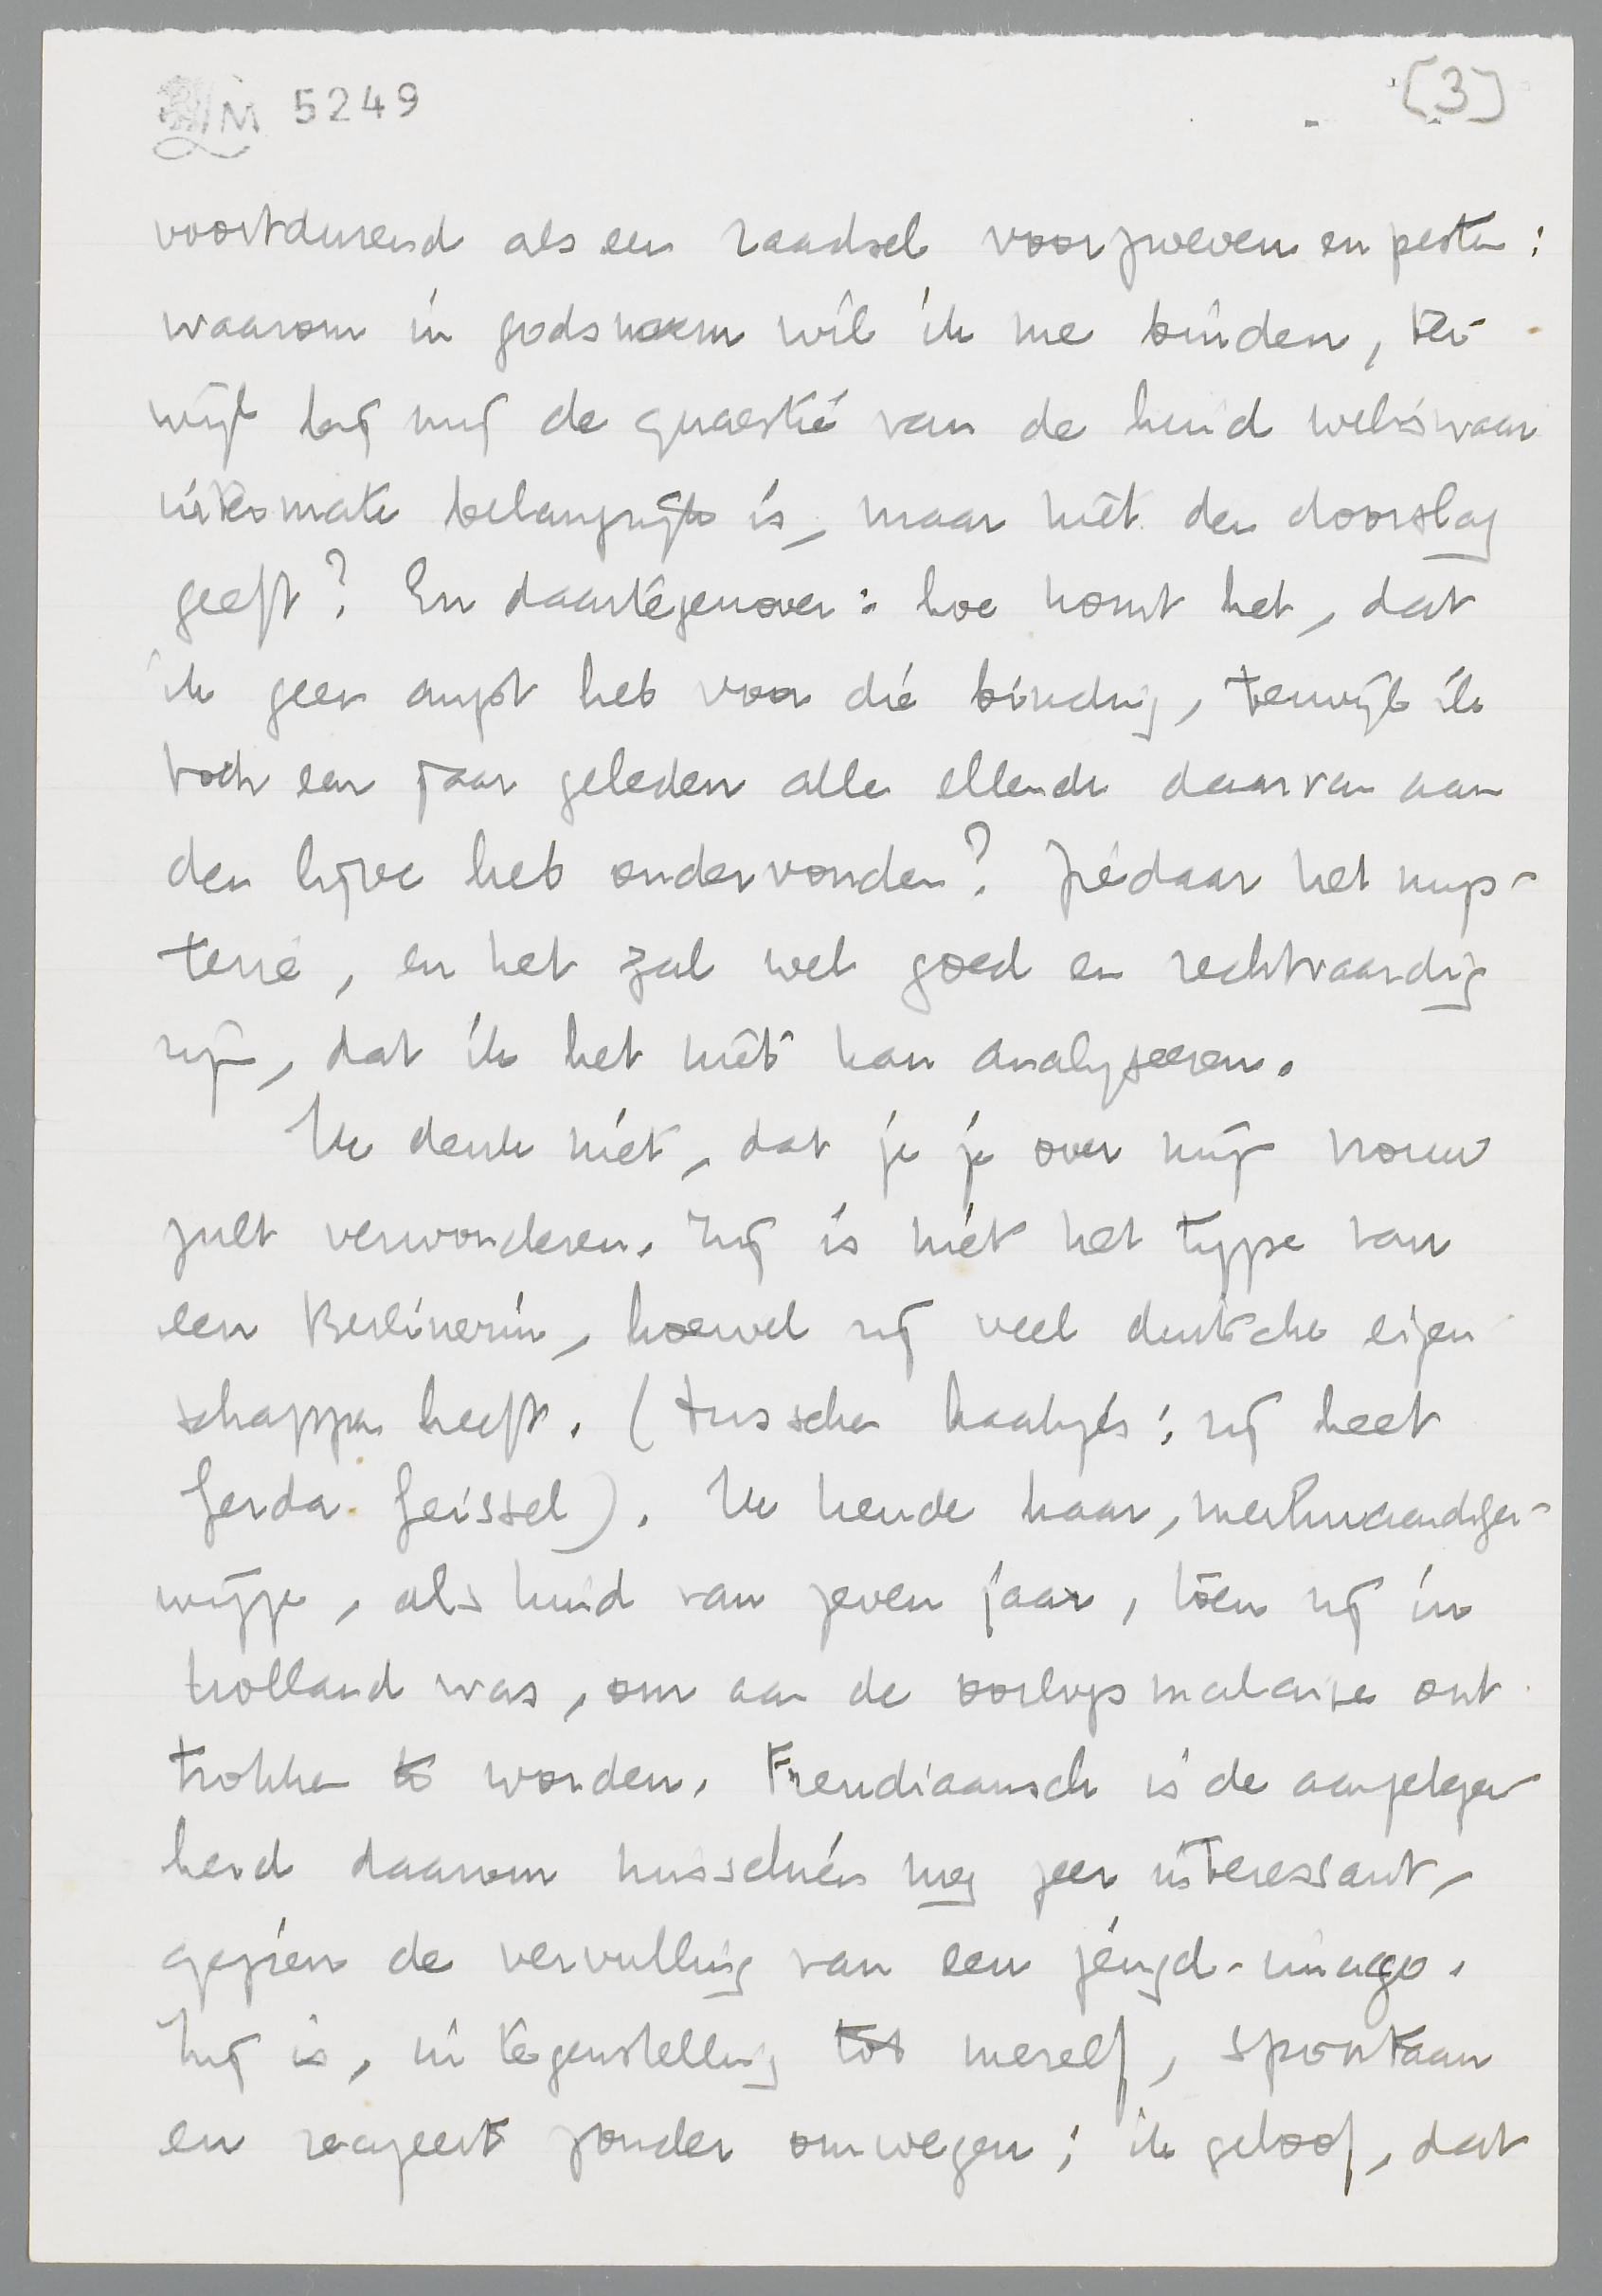 M 5249
[3]
voortdurend als een raadsel voorzweven en pesten:
waarom in godsnaam wil ik me binden, ter-
wijl bij mij de quaestie van de huid weliswaar
uitermate belangrijk is, maar niet den doorslag
geeft? En daartegenover: hoe komt het, dat
ik geen angst heb voor die binding, terwijl ik
toch een jaar geleden alle ellende daarvan aan
den lijve heb ondervonden? Ziedaar het mys-
terie, en het zal wel goed en rechtvaardig
zijn, dat ik het niet kan analyseeren.
Ik denk niet, dat je je over mijn vrouw
zult verwonderen. Zij is niet het type van
een Berlinerin, hoewel zij veel duitsche eigen
schappen heeft. (tusschen haakjes: zij heet
Gerda Geissel). Ik kende haar, merkwaardiger-
wijze, als kind van zeven jaar, toen zij in
Holland was, om aan de oorlogsmalaise ont
trokken te worden. Freudiaansch is de aangelegen
heid daarom misschien nog zeer interessant,
gezien de vervulling van een jeugd-imago.
Zij is, in tegenstelling tot mezelf, spontaan
en reageert zonder omwegen; ik geloof, dat